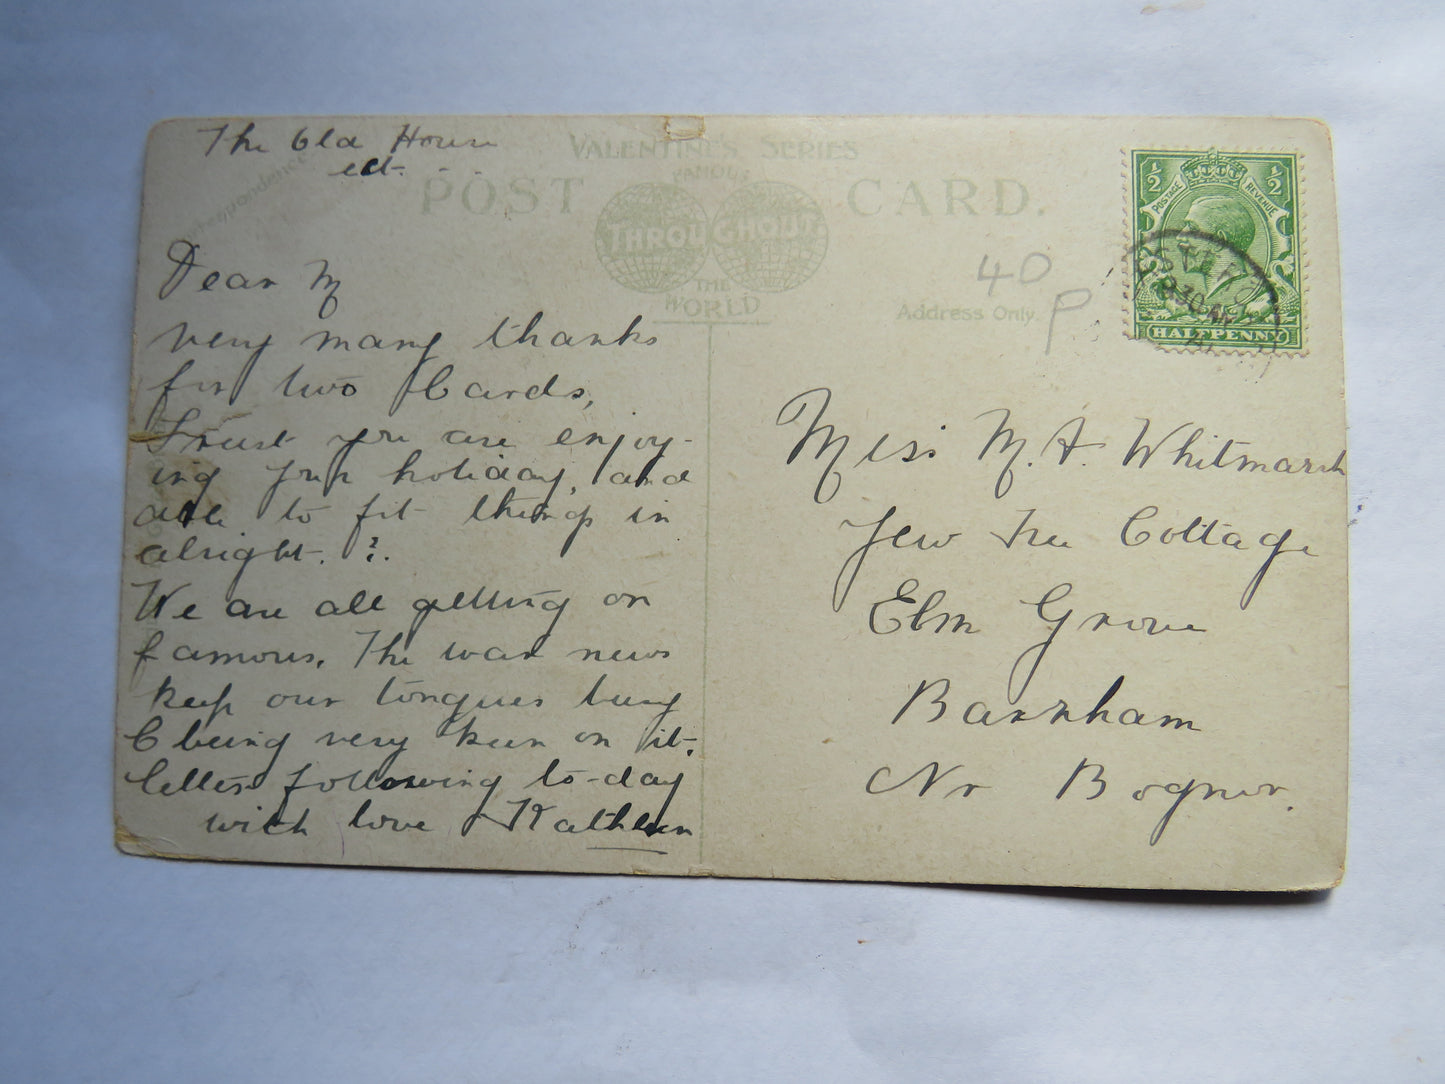 The Old House
ect. - - -
VALENTINE'S SERIES
Correspondence
POST CARD.
FAMOUS
THROUGHOUT
THE
WORLD
Address Only.
40
P
½ ½
POSTAGE REVENUE
HALFPENNY
Dear M
Very many thanks
for two Cards,
Trust you are enjoy-
ing your holiday, and
able to fit things in
alright. ?.
We are all getting on
famous. The war news
keep our tongues busy
C being very keen on it.
Letters following to-day
with love Kathleen
Miss M. A. Whitmarsh
Yew Tree Cottage
Elm Grove
Barnham
Nr Bognor.